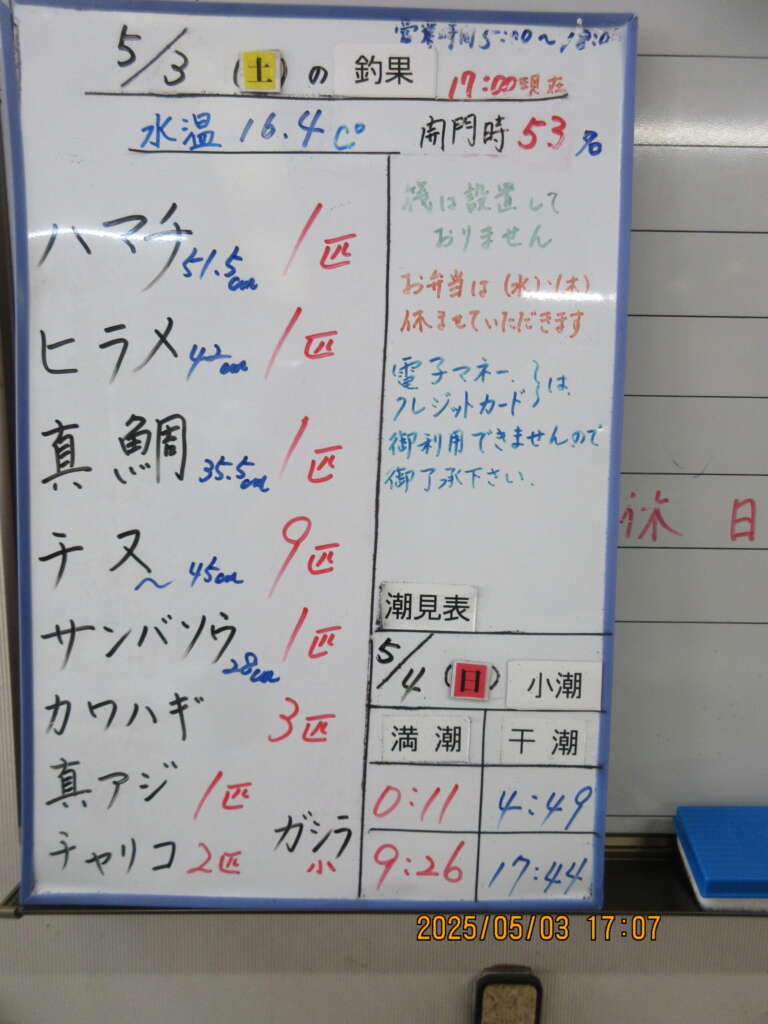 営業時間 5:00〜18:0
5/3 (土)の 釣果 17:00現在
水温 16.4℃ 開門時 53名
ハマチ 51.5cm 1匹
ヒラメ 42cm 1匹
真鯛 35.5cm 1匹
チヌ 〜45cm 9匹
サンバソウ 28cm 1匹
カワハギ 3匹
真アジ 1匹
チャリコ 2匹
ガシラ 小
筏は設置して
おりません
お弁当は(水)・(木)
休ませていただきます
電子マネー、
クレジットカード}は、
御利用できませんので
御了承下さい。
潮見表
5/4 (日) 小潮
満潮 干潮
0:11 4:49
9:26 17:44
休日
2025/05/03 17:07